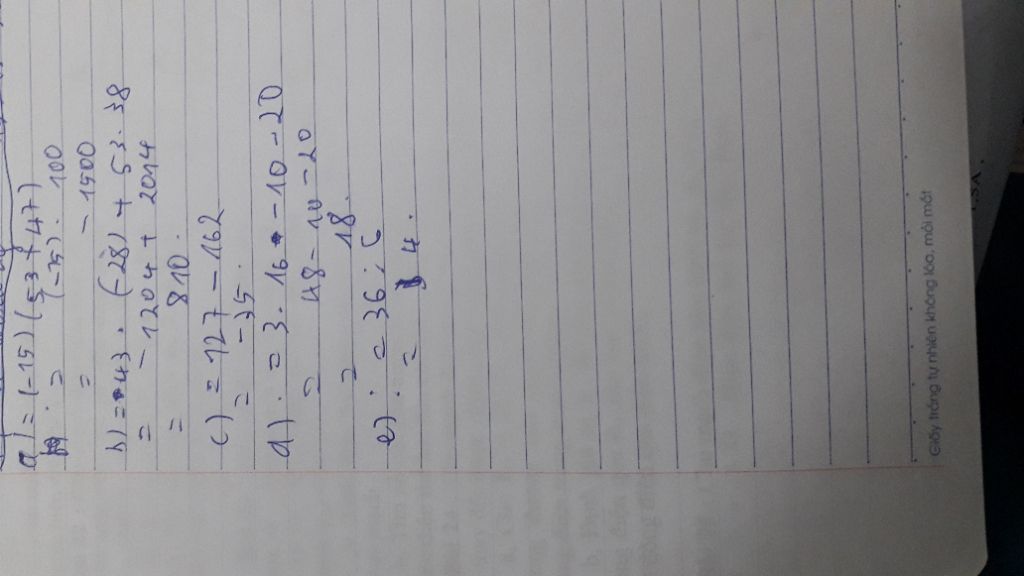 a) = (-15) (53 + 47)
= (-15) . 100
= - 1500
b) = 43 . (-28) + 53 . 38
= - 1204 + 2014
= 810 .
c) = 127 - 162
= -35 .
d) . = 3 . 16 - 10 - 20
= 48 - 10 - 20
= 18 .
e) . = 36 :
= 4 .
Giấy trắng tự nhiên không lóa, mỏi mắt